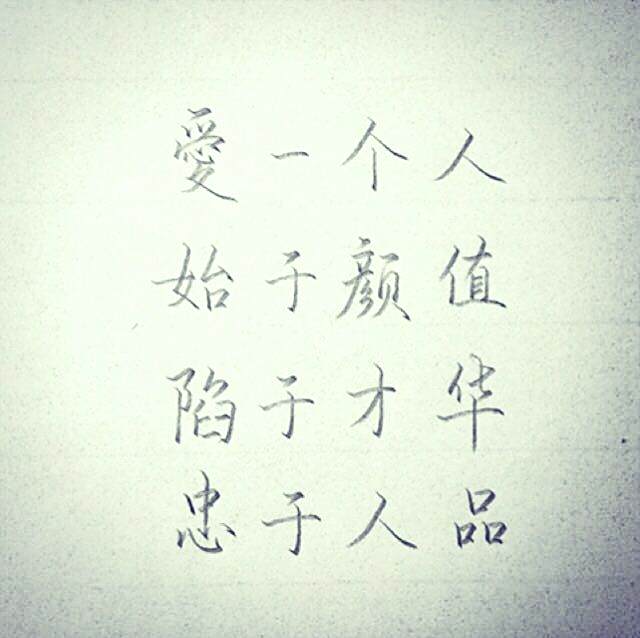 愛一个人
始于颜值
陷于才华
忠于人品